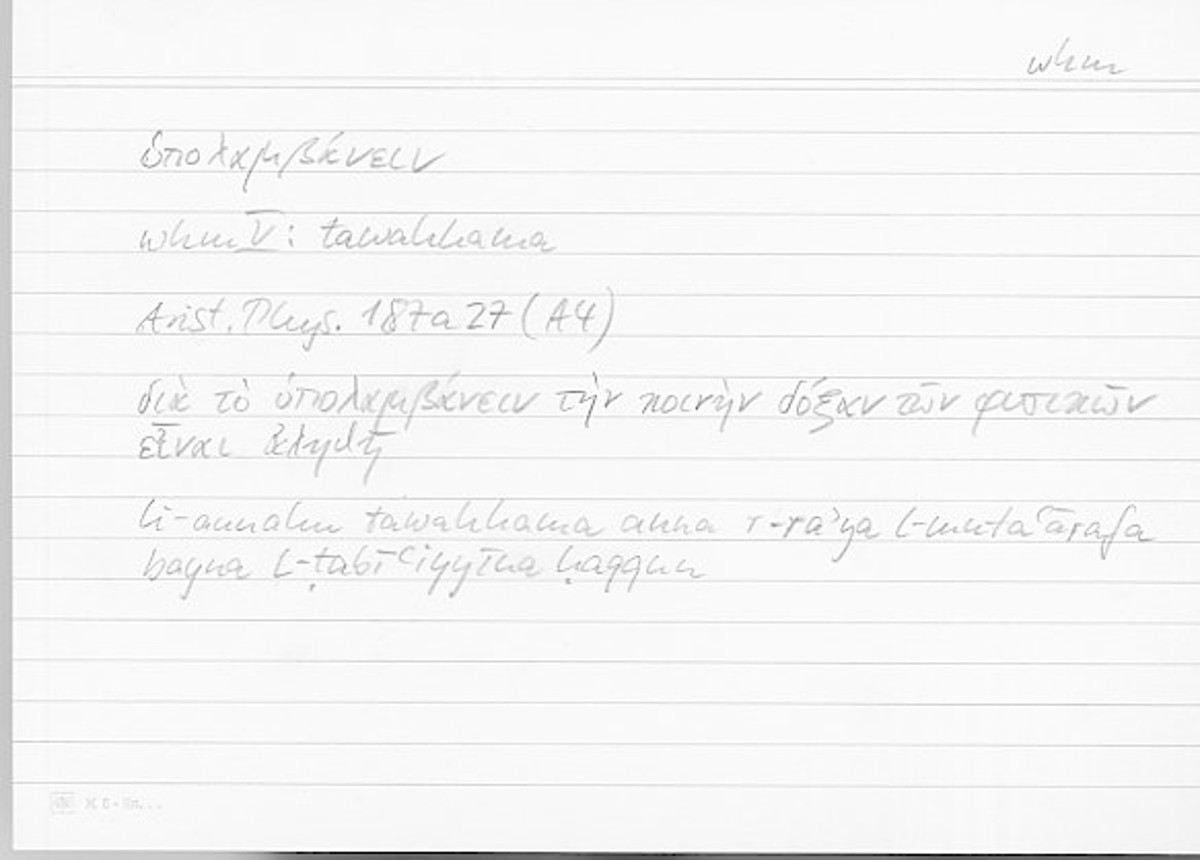 whm
ὑπολαμβάνειν
whm V: tawahhama
Arist. Phys. 187a27 (A4)
διὰ τὸ ὑπολαμβάνειν τὴν κοινὴν δόξαν τῶν φυσικῶν
εἶναι ἀληθῆ
li-annahu tawahhama anna r-ra'ya l-mutaʿārafa
bayna l-ṭabīʿiyyīna ḥaqqun